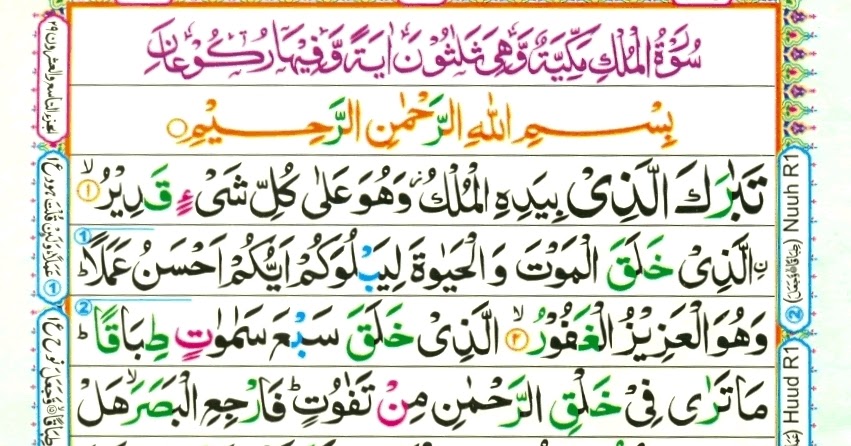 سُوْرَةُ الْمُلْكِ مَكِّيَّةٌ وَّهِىَ ثَلٰثُوْنَ اٰيَةً وَّفِيْهَا رُكُوْعَانِ
بِسْمِ اللّٰهِ الرَّحْمٰنِ الرَّحِيْمِ
تَبٰرَكَ الَّذِىْ بِيَدِهِ الْمُلْكُ ز وَهُوَ عَلٰى كُلِّ شَىْءٍ قَدِيْرُ ۙ ١
نِ الَّذِىْ خَلَقَ الْمَوْتَ وَ الْحَيٰوةَ لِيَبْلُوَكُمْ اَيُّكُمْ اَحْسَنُ عَمَلًا ؕ
وَهُوَ الْعَزِيْزُ الْغَفُوْرُ ۙ ٢ الَّذِىْ خَلَقَ سَبْعَ سَمٰوٰتٍ طِبَاقًا ؕ
مَا تَرٰى فِىْ خَلْقِ الرَّحْمٰنِ مِنْ تَفٰوُتٍ ؕ فَارْجِعِ الْبَصَرَ ۙ هَلْ
الجزء التاسع والعشرون ٢٩
1
2
2 Nuuh R1
Huud R1